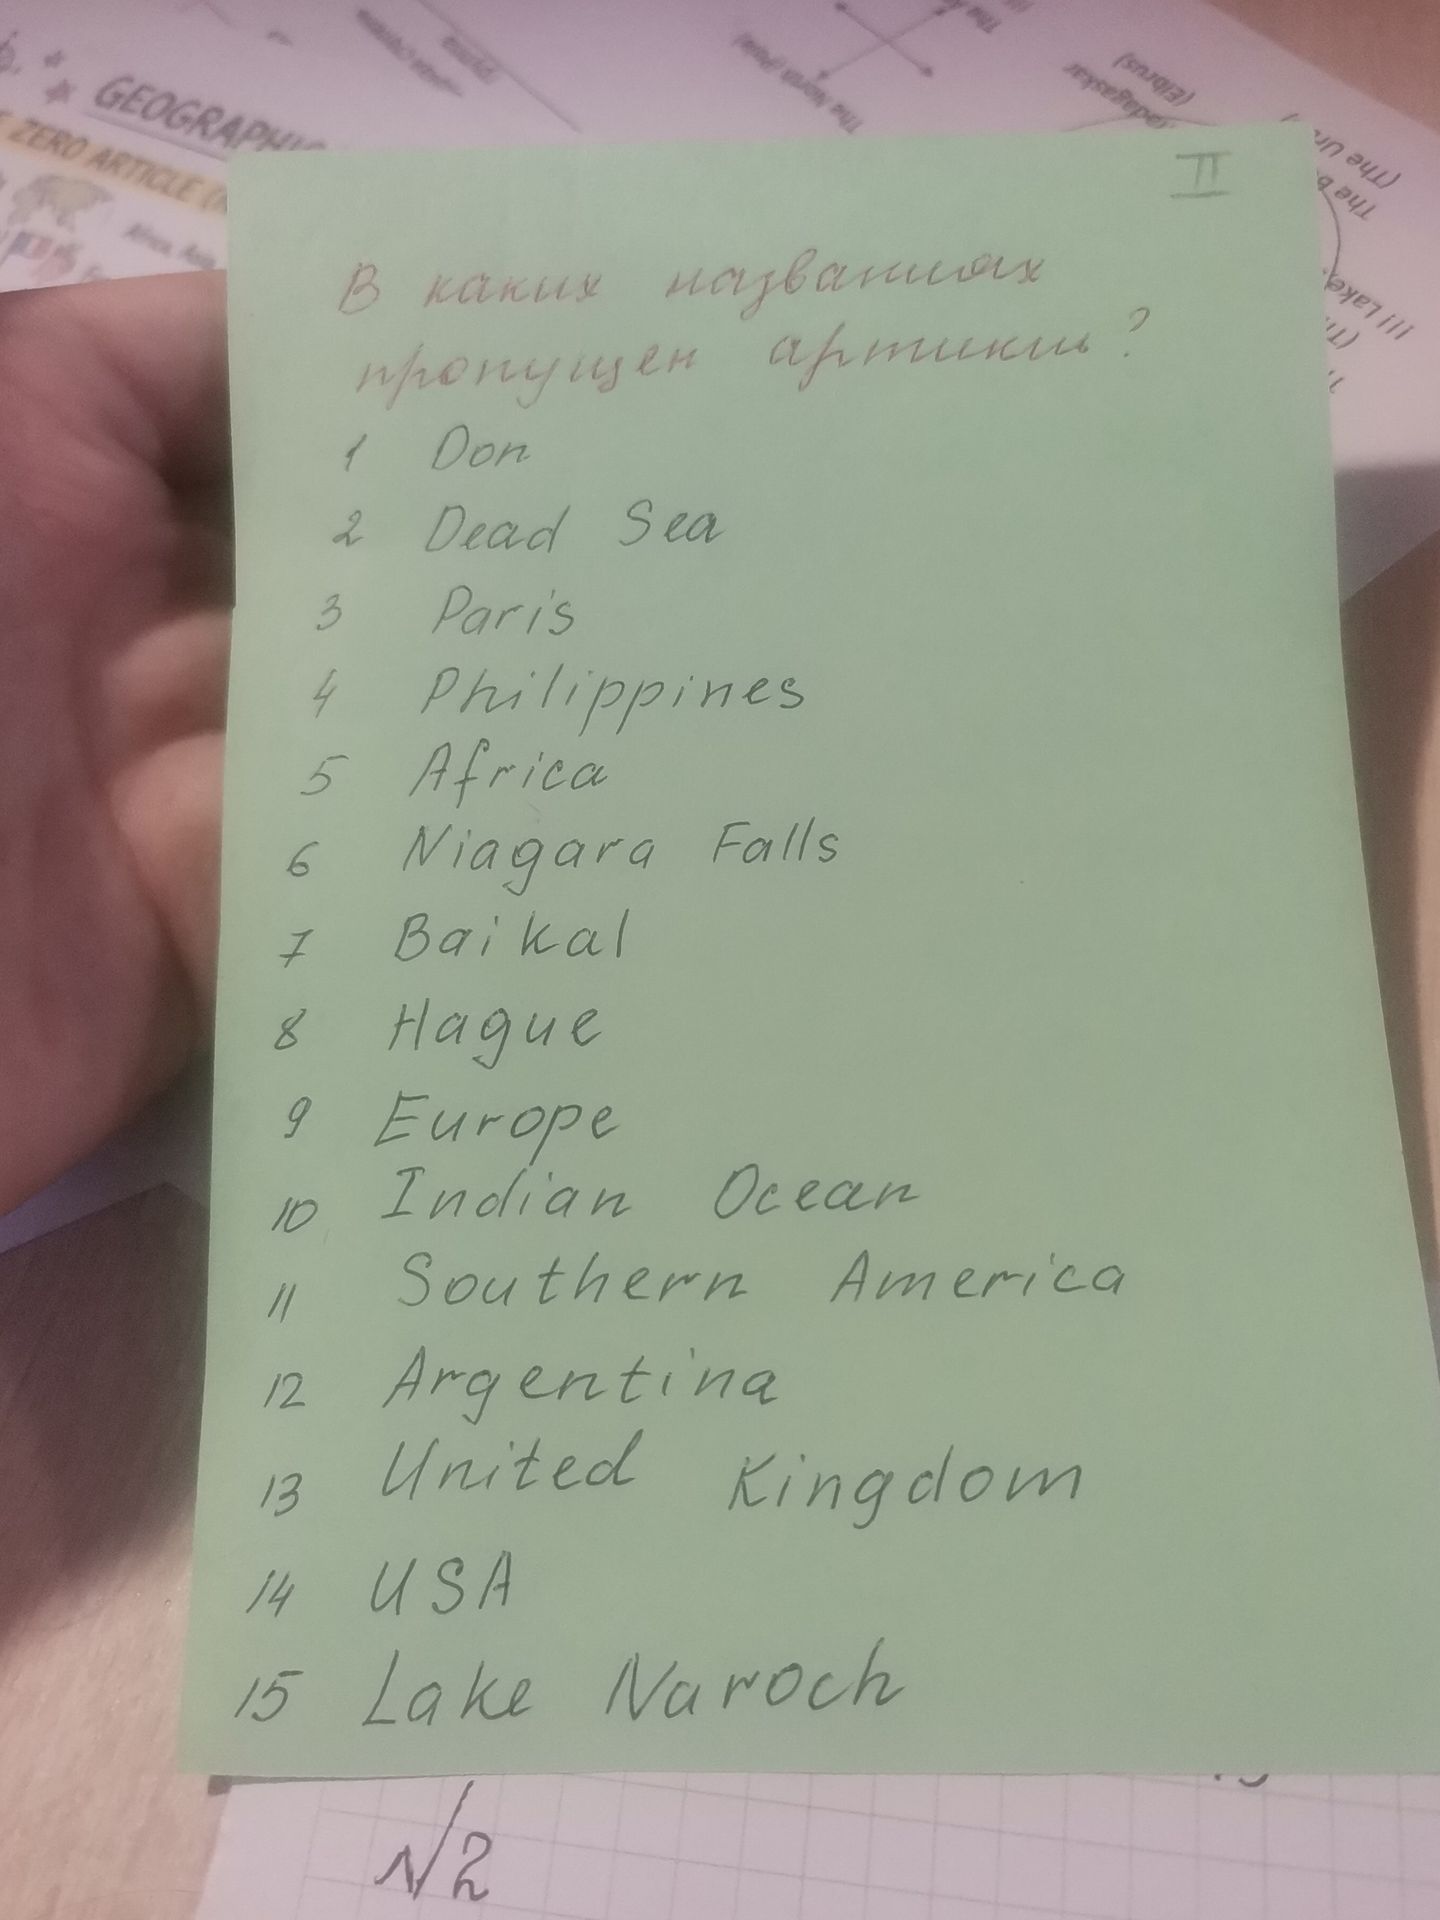 GEOGRAPHI
ZERO ARTICLE
The North (Pole)
(Elbrus)
II
В каких названиях
пропущен артикль?
1 Don
2 Dead Sea
3 Paris
4 Philippines
5 Africa
6 Niagara Falls
7 Baikal
8 Hague
9 Europe
10 Indian Ocean
11 Southern America
12 Argentina
13 United Kingdom
14 USA
15 Lake Naroch
№2